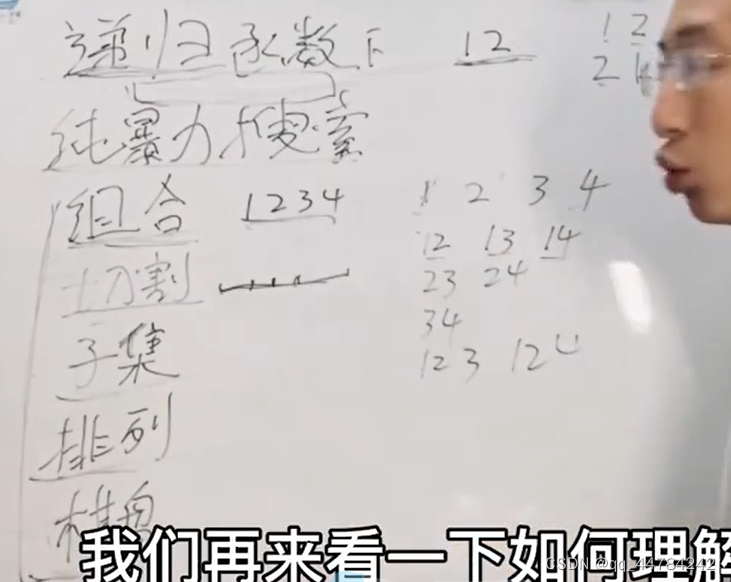 递归函数下 12 12
纯暴力搜索 2
组合 1234 1 2 3 4
12 13 14
切割 23 24
34
子集 123 12
排列
棋盘
我们再来看一下如何理解
CSDN @qq_44784242